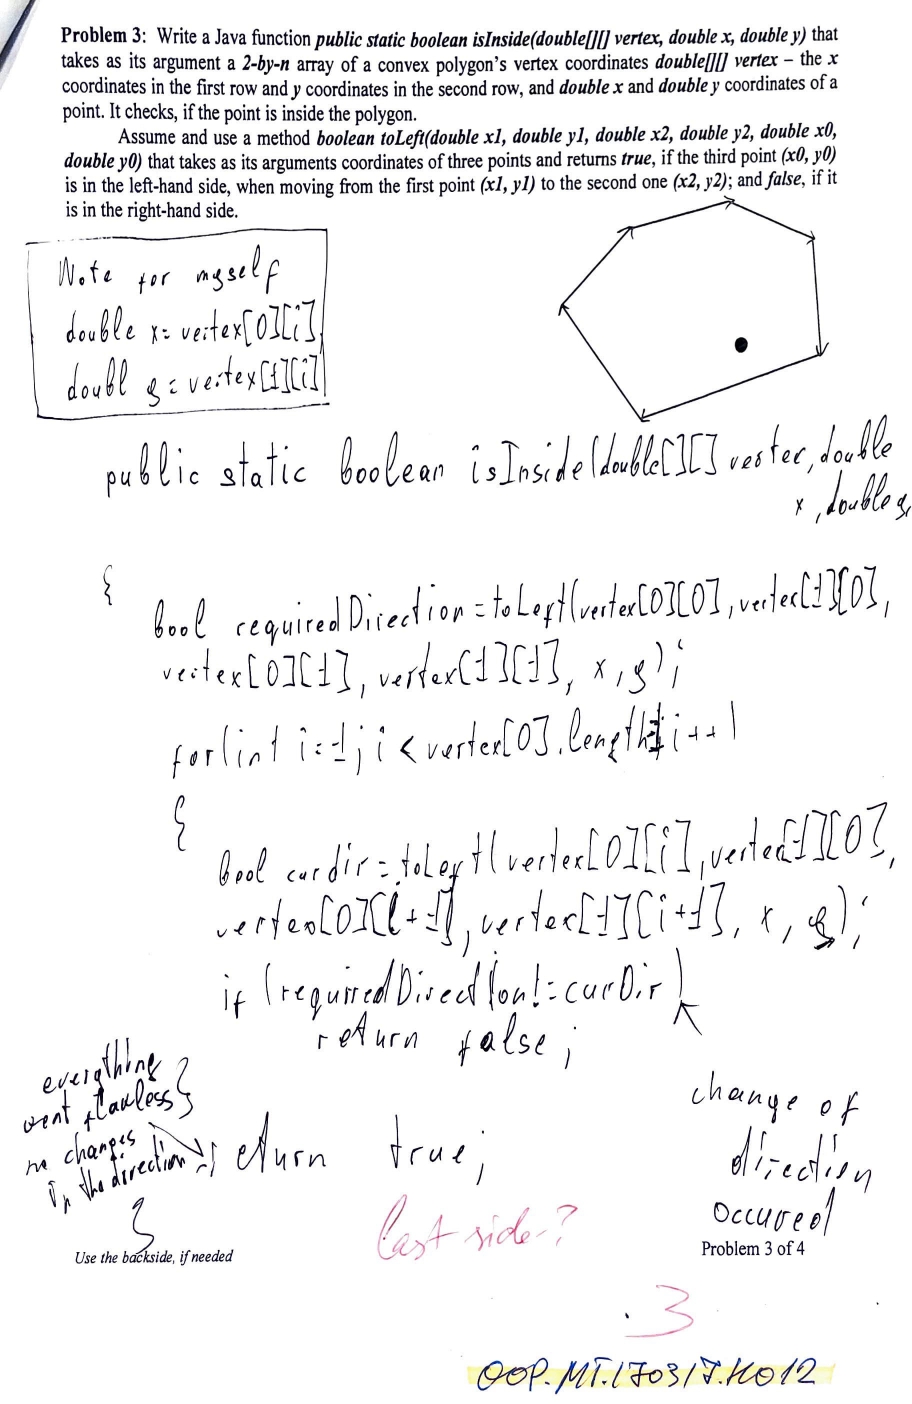 Problem 3: Write a Java function public static boolean isInside(double[][] vertex, double x, double y) that
takes as its argument a 2-by-n array of a convex polygon's vertex coordinates double[][] vertex – the x
coordinates in the first row and y coordinates in the second row, and double x and double y coordinates of a
point. It checks, if the point is inside the polygon.
Assume and use a method boolean toLeft(double x1, double y1, double x2, double y2, double x0,
double y0) that takes as its arguments coordinates of three points and returns true, if the third point (x0, y0)
is in the left-hand side, when moving from the first point (x1, y1) to the second one (x2, y2); and false, if it
is in the right-hand side.
Note for myself
double x = vertex[0][i]
doubl y = vertex[1][i]
public static boolean isInside(double[][] vertex, double
x, double y
{
bool requiredDirection = toLeft(vertex[0][0], vertex[1][0],
vertex[0][1], vertex[1][1], x, y);
for(int i=1; i < vertex[0].length; i++)
{
bool curdir = toLeft(vertex[0][i], vertex[1][0],
vertex[0][i+1], vertex[1][i+1], x, y);
if (requiredDirection != curDir)
return false;
}
everything
went flawless
no changes
in the direction
return true;
}
change of
direction
occured
Last side?
Use the backside, if needed
Problem 3 of 4
3
OOP.MT.170317.H012